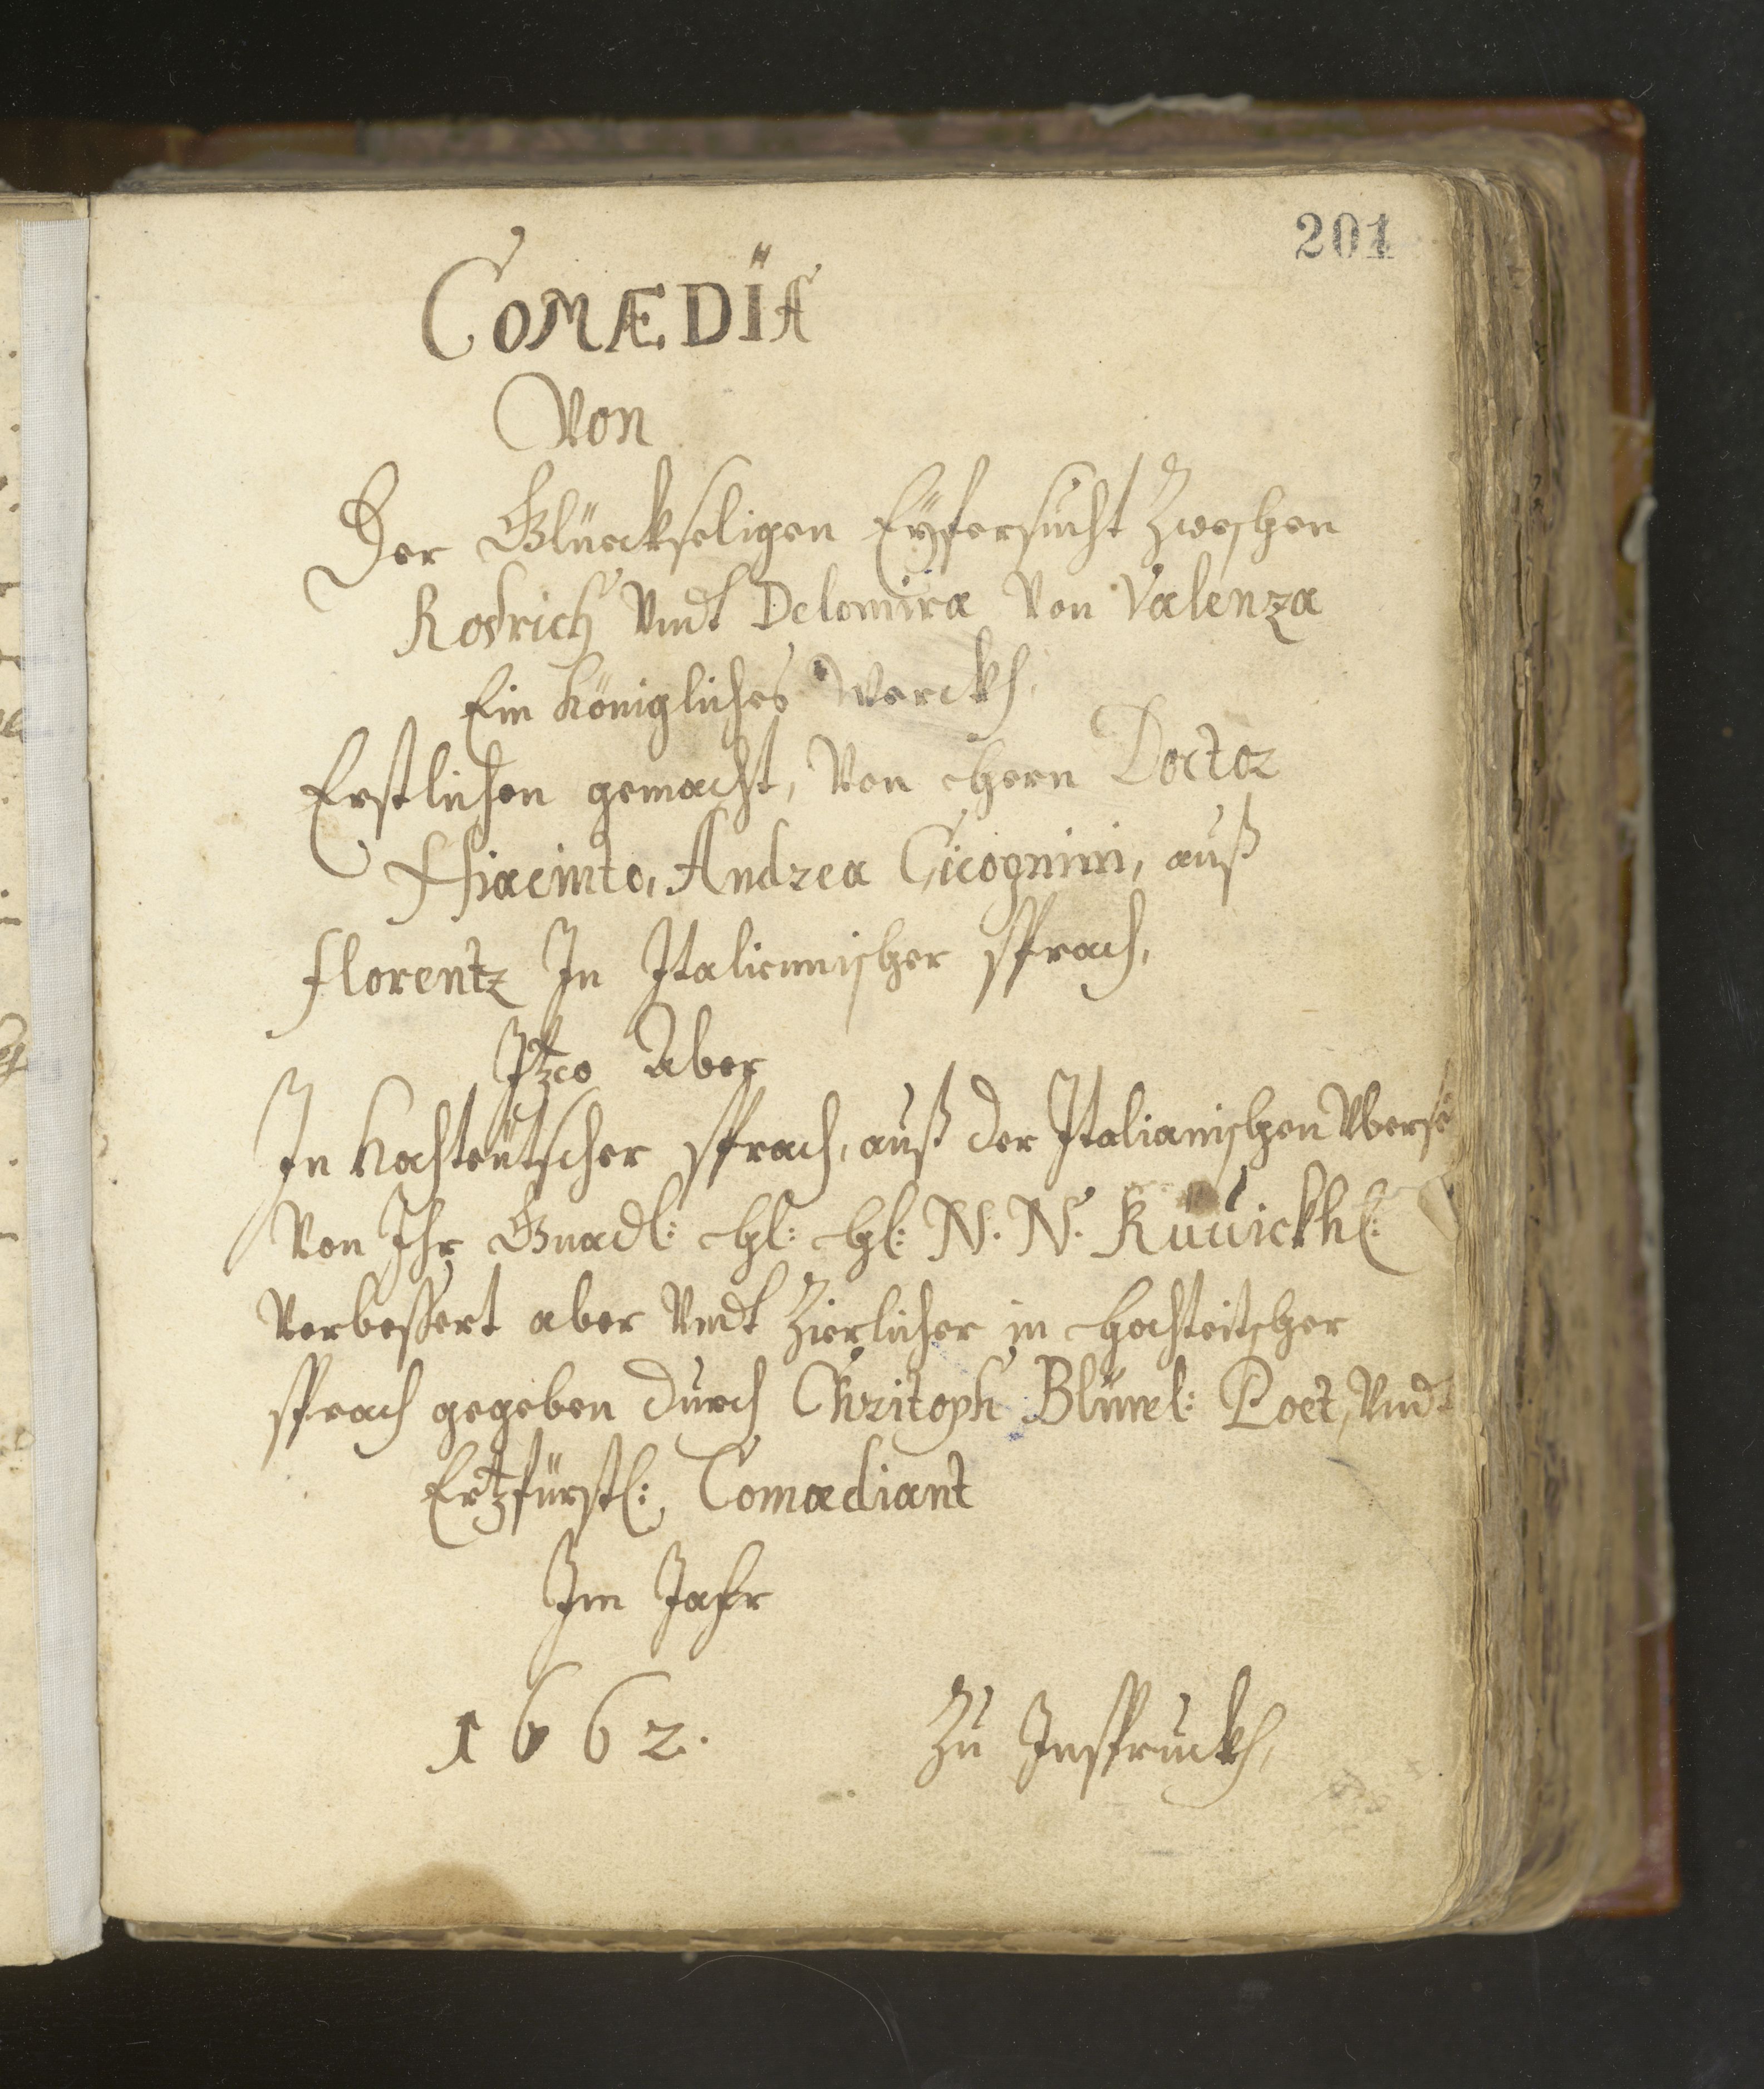 201
COMÆDIA
Von
Der Glückseligen Eÿfersucht Zweschen
Rodrich Vndt Delomira Von Valenza
Ein Königliches Werckh,
Erstlichen gemacht, Von Hern Doctor
Hiacinto, Andrea Cicognini, auß
florentz In Italiennischer sprach,
Itzo Aber
In Hochteütscher sprach, auß der Italianischen Vberse
Von Ihr Gnadl: Hl: Hl: N. N.
Verbessert aber Vndt Zierlicher in Hochteitscher
sprach gegeben durch Christoph Blümel: Poet, Vndt
Ertzfürstl: Comœdiant
Im Jahr
1662. Zu Inspruckh,